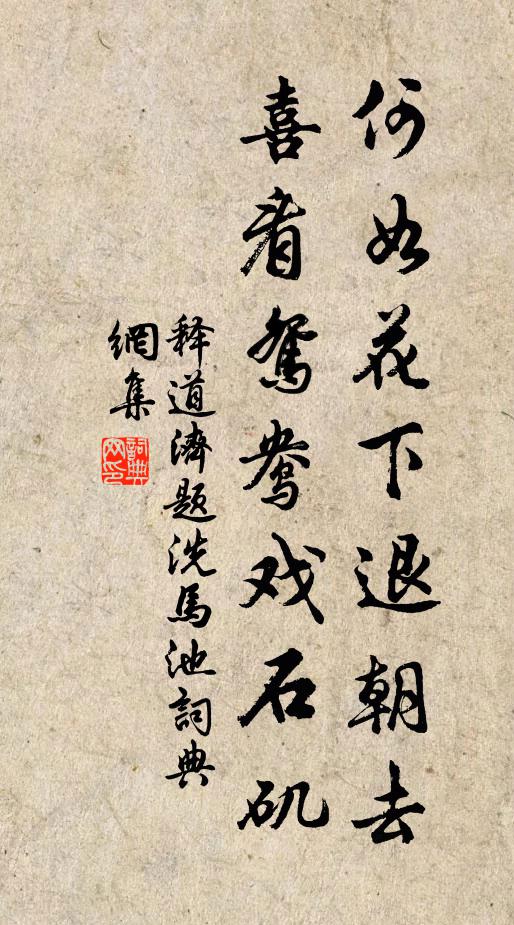 何如花下退朝去
喜看鸳鸯戏石矶
释道濟题洗馬池詞典
網集
詞典
网印